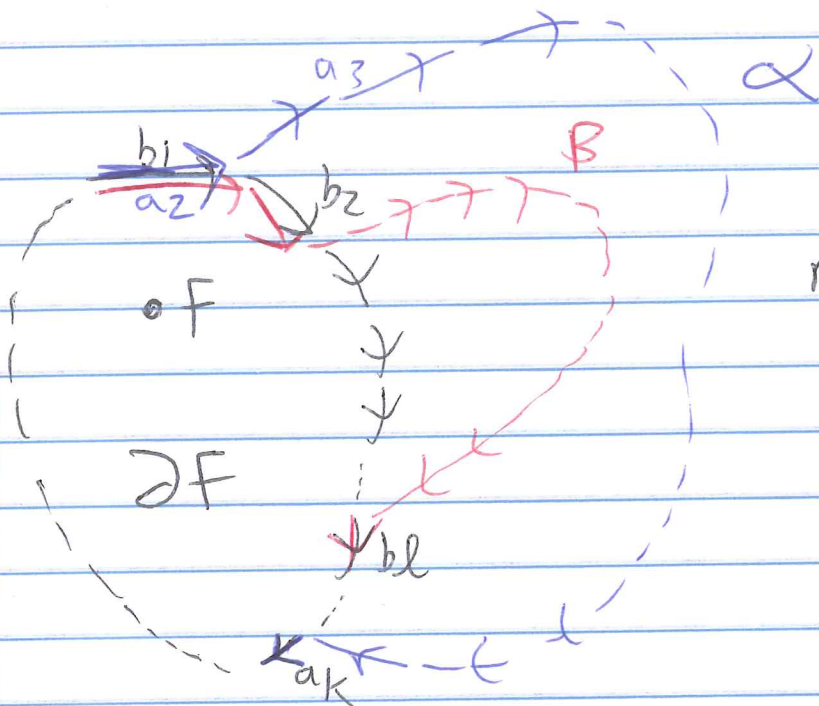 a3
α
b1
β
a2
b2
F
∂F
bl
ak